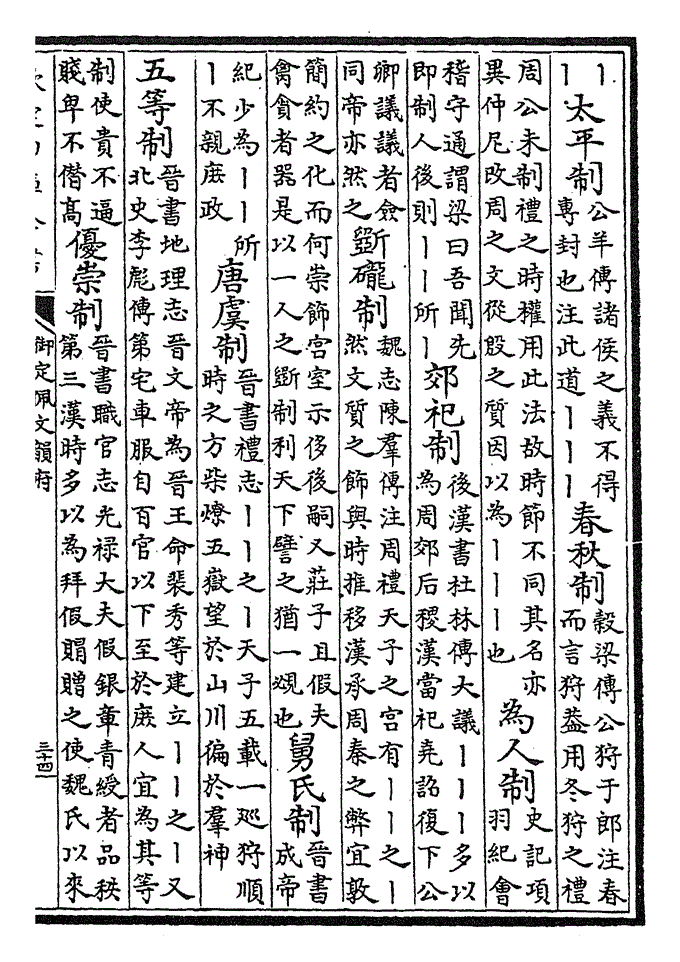 丨
丨
太平制
公羊傳諸侯之義不得
專封也注此道丨丨丨
春秋制
穀梁傳公狩于郎注春
而言狩葢用冬狩之禮
周公未制禮之時權用此法故時節不同其名亦
異仲尼改周之文從殷之質因以為丨丨丨也
為人制
史記項
羽紀會
稽守通謂梁曰吾聞先
即制人後則丨丨所丨
郊祀制
後漢書杜林傳大議丨丨丨多以
為周郊后稷漢當祀堯詔復下公
卿議議者僉
同帝亦然之
斲礲制
魏志陳羣傳注周禮天子之宫有丨丨之丨
然文質之飾與時推移漢承周秦之弊宜敦
簡約之化而何崇飾宫室示侈後嗣又莊子且假夫
禽貪者器是以一人之斷制利天下譬之猶一覕也
舅氏制
晉書
成帝
紀少為丨丨所
丨不親庶政
唐虞制
晉書禮志丨丨之丨天子五載一巡狩順
時之方柴燎五嶽望於山川徧於羣神
五等制
晉書地理志晉文帝為晉王命裴秀等建立丨丨之丨又
北史李彪傳第宅車服自百官以下至於庶人宜為其等
制使貴不逼
賤卑不僭高
優崇制
晉書職官志光禄大夫假銀章青綬者品秩
第三漢時多以為拜假賵贈之使魏氏以來
御定佩文韻府
三十四